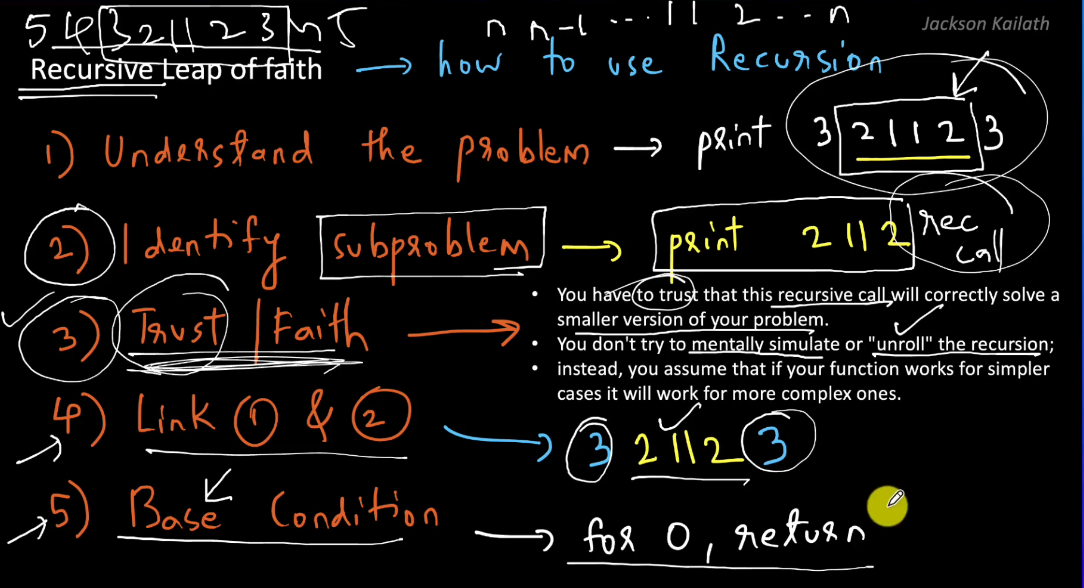 n n-1 ... 1 1 2 ... n
5 4 3 2 1 1 2 3 4 5
Jackson Kailath
Recursive Leap of faith → how to use Recursion
1) Understand the problem → print 3 2 1 1 2 3
2) Identify subproblem → print 2 1 1 2 rec call
3) Trust | Faith →
• You have to trust that this recursive call will correctly solve a
smaller version of your problem.
• You don't try to mentally simulate or "unroll" the recursion;
• instead, you assume that if your function works for simpler
cases it will work for more complex ones.
4) Link 1 & 2 → 3 2 1 1 2 3
5) Base Condition → for 0, return